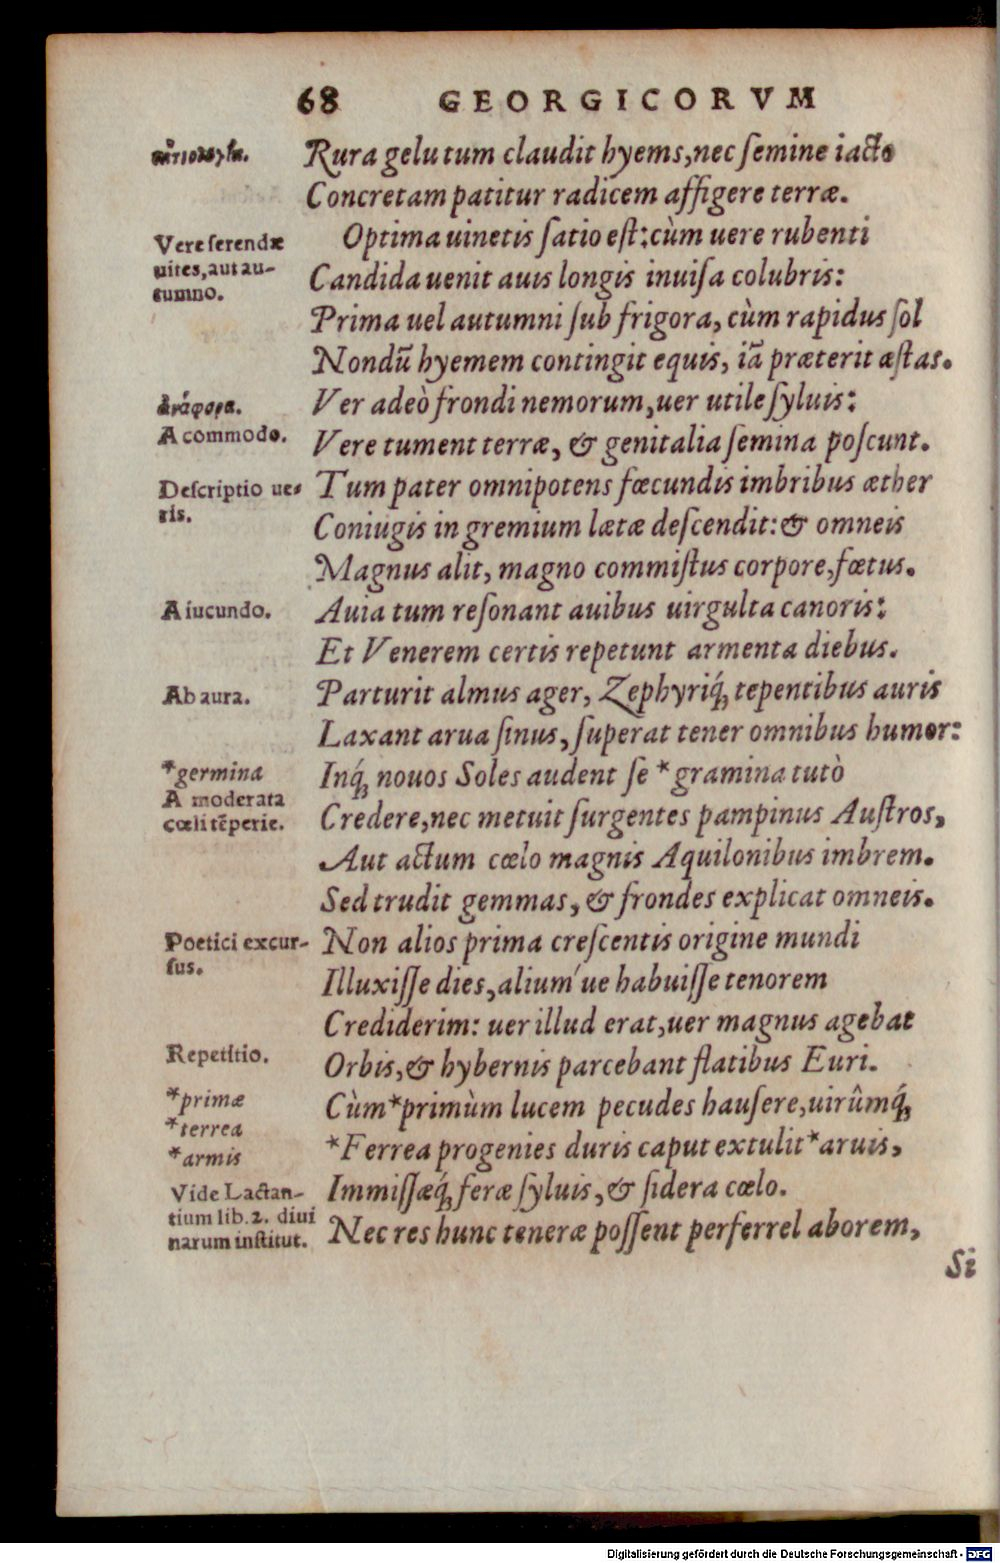 68 GEORGICORVM
αἰτιολογία.
Rura gelu tum claudit hyems, nec ſemine iacto
Concretam patitur radicem affigere terræ.
Vere ſerendæ
uites, aut au-
tumno.
Optima uinetis ſatio eſt: cùm uere rubenti
Candida uenit auis longis inuiſa colubris:
Prima uel autumni ſub frigora, cùm rapidus ſol
Nondũ hyemem contingit equis, iã præterit æſtas.
ἀνάφορα.
Ver adeò frondi nemorum, uer utile ſyluis:
A commodo.
Vere tument terræ, & genitalia ſemina poſcunt.
Deſcriptio ue-
ris.
Tum pater omnipotens fœcundis imbribus æther
Coniugis in gremium lætæ deſcendit: & omneis
Magnus alit, magno commiſtus corpore, fœtus.
A iucundo.
Auia tum reſonant auibus uirgulta canoris:
Et Venerem certis repetunt armenta diebus.
Ab aura.
Parturit almus ager, Zephyriq́; tepentibus auris
Laxant arua ſinus, ſuperat tener omnibus humor:
*germina
Inq́; nouos Soles audent ſe *gramina tutò
A moderata
cœli tẽperie.
Credere, nec metuit ſurgentes pampinus Auſtros,
Aut actum cœlo magnis Aquilonibus imbrem.
Sed trudit gemmas, & frondes explicat omneis.
Poetici excur-
ſus.
Non alios prima creſcentis origine mundi
Illuxiſſe dies, alium´ue habuiſſe tenorem
Crediderim: uer illud erat, uer magnus agebat
Repetitio.
Orbis, & hybernis parcebant flatibus Euri.
*primæ
Cùm *primùm lucem pecudes hauſere, uirûmq́;
*terrea
*armis
*Ferrea progenies duris caput extulit *aruis,
Vide Lactan-
tium lib. 2. diui
narum inſtitut.
Immiſſæq́; feræ ſyluis, & ſidera cœlo.
Nec res hunc teneræ poſſent perferrel aborem,
Si
Digitalisierung gefördert durch die Deutsche Forschungsgemeinschaft - DFG